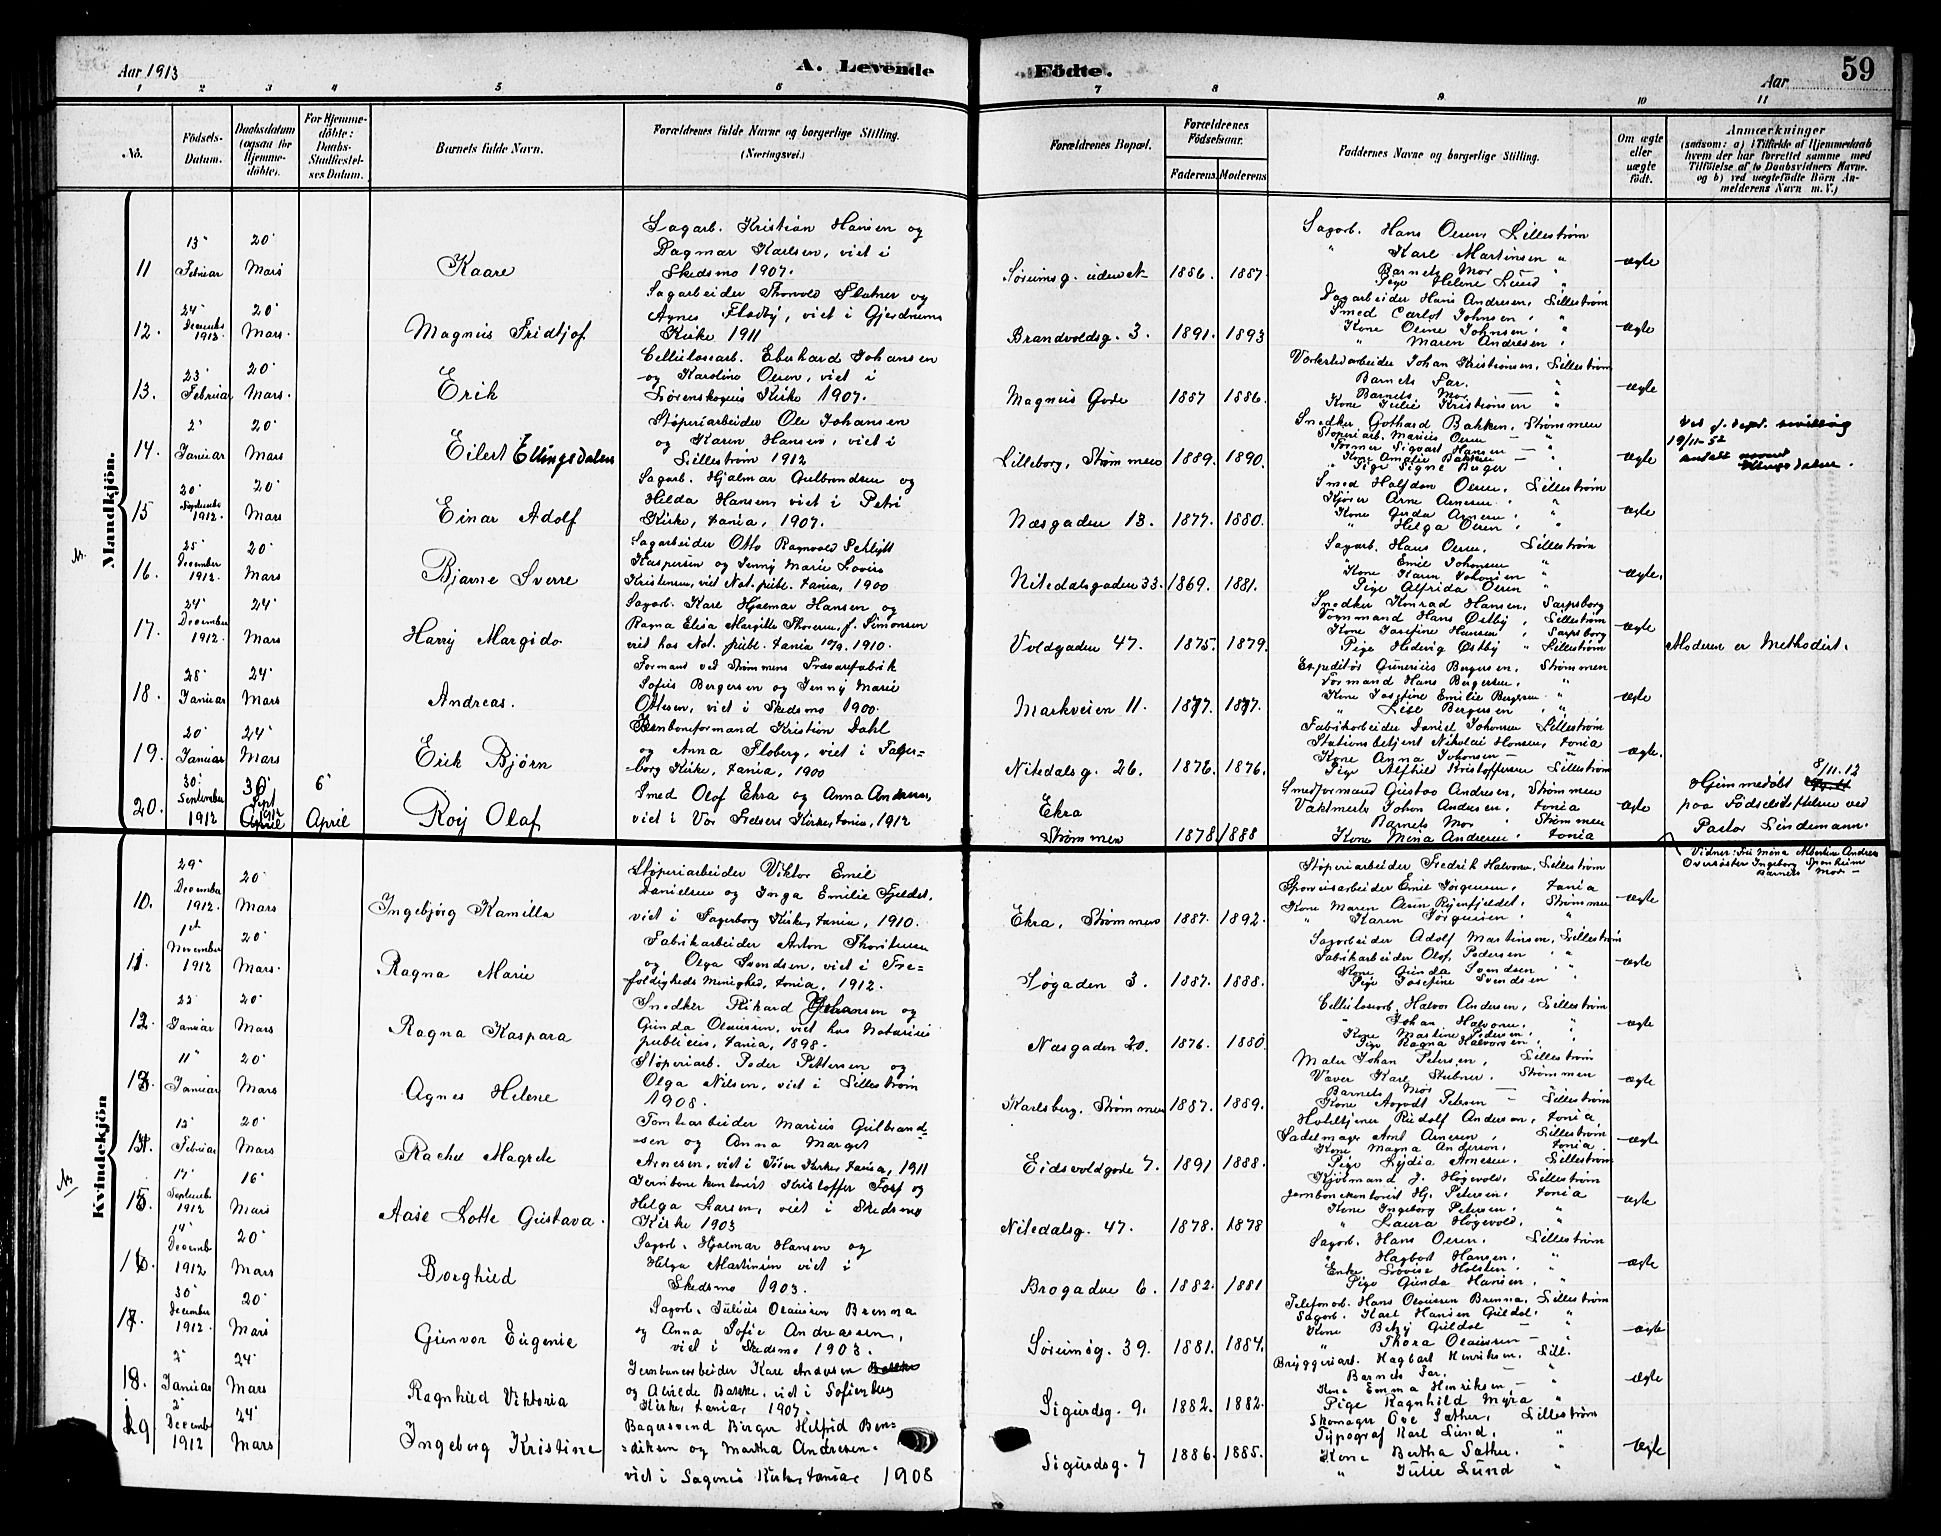 Aar 1913
A. Levende Födte.
Aar 59
1 2 3 4 5 6 7 8 9 10 11
No.
Födsels-Datum.
Daabsdatum (ogsaa for Hjemme-döbte).
For Hjemme-döbte: Daabs-Stadfæstel-ses Datum.
Barnets fulde Navn.
Forældrenes fulde Navne og borgerlige Stilling. (Næringsvei.)
Forældrenes Bopæl.
Forældrenes Födselsaar.
Faderens. Moderens.
Faddernes Navne og borgerlige Stilling.
Om ægte eller uægte födt.
Anmærkninger
(saasom: a) i Tilfælde af Hjemmedaab
hvem der har forrettet samme med
Tilföielse af to Daabsvidners Navne.
og b) ved uægtefödte Börn An-
melderens Navn m. V.)
Mandkjön.
11 13' Februar 20' Mars Kaare
Sagarb. Kristian Hansen og
Dagmar Karlsen, viet i
Skedsmo 1907.
1886. 1887.
Sagarb. Hans Olsen, Lillestrøm
" Karl Martinsen "
Barnets Mor — "
Pige Helene Lund "
ægte
12. 24' Decembr 1912. 20' Mars. Magnus Fridtjof
Sagarbeider Thorvald Platner og
Agnes Fladby, viet i Gjerdrums
Kirke 1911
Brandvoldsg. 3. 1891. 1893
Dagarbeider Hans Andresen, Lillestrøm
Smed Carlot Johnsen, "
Kone Oline Johnsen, "
" Maren Andresen, "
ægte
13. 23' Februar 20' Mars. Erik
Cellulosearb. Eberhard Johansen
og Karoline Olsen, viet i
Sørenskogens Kirke 1907.
Magnus Gade 1887 1886.
Verkstedarbeider Johan Kristiansen, Lillestrøm
Barnets Far. "
Barnets Mor — "
Kone Julie Kristiansen "
ægte
14. 2' Januar 20' Mars Eilert Ellingsdalen
Støperiarbeider Ole Johansen
og Karen Hansen, viet i
Lillestrøm 1912
Lilleborg, Strømmen 1889. 1890.
Snedker Gothard Bakken, Strømmen
Støperiarb. Marius Olsen — "
Former Sigvart Hansen — "
Kone Amalie Bakken — "
" Pige Signe Berger "
ægte
Ved j. dept. bevilling
19/11-52
antatt navnet
Ellingsdalen.
15 20' Septembr 1912. 20' Mars Einar Adolf
Sagarb. Hjalmar Gulbrandsen og
Hilda Hansen viet i Petri
Kirke, Xania, 1907.
Næsgaden 13. 1877. 1880.
Smed Halfdan Olsen, Lillestrøm
Kjører Arne Arnesen, "
Kone Guda Arnesen, "
" Helga Olsen, "
ægte
16. 25' December 1912. 20' Mars Bjarne Sverre
Sagarbeider Otto Ragnvald Schlytt
Kaspersen og Jenny Marie Lovise
Kristensen, viet Not. publ. Xania, 1900
Nitedalsgaden 33. 1869. 1881.
Sagarb. Hans Olsen, Lillestrøm
" Emil Johansen "
Kone Karen Johansen "
Pige Alfrida Olsen "
ægte.
17. 24' December 1912. 24' Mars Harry Margido
Sagarb. Karl Hjalmar Hansen og
Ragna Elisa Margitte Thoresen, f. Simonsen
viet hos Not. publ. Xania 17/9. 1910.
Voldgaden 47. 1875. 1879.
Snedker Konrad Hansen, Sarpsborg
Vognmand Hans Østby, Lillestrøm
Kone Josefine Hansen, Sarpsborg
Pige Hedvig Østby " Lillestrøm
ægte
Moderen er Methodist.
18. 28' Januar 24' Mars Andreas.
Formand ved Strømmens Trævarefabrik
Sofus Bergersen og Jenny Marie
Ottesen, viet i Skedsmo 1900.
Markveien 11. 1877. 1877.
Expeditør Gunerius Bergersen, Strømmen
Formand Hans Bergersen, "
Kone Josefine Emilie Bergersen "
" Lise Bergersen, "
ægte
19. 20' Januar 24' Mars Erik Bjørn
Banboneformand Kristian Dahl
og Anna Floberg, viet i Fager-
borg Kirke, Xania, 1900
Nitedalsg. 26. 1876. 1876.
Fabrikarbeider Daniel Johansen Lillestrøm
Stationsbetjent Nikolai Hansen, Xania
Kone Anna Johansen "
Pige Alfhild Kristoffersen Lillestrøm
ægte.
20. 30' September 1912 30' Sept 1912 April 6' April Roy Olaf
Smed Olof Ekra og Anna Andresen,
viet i Vor Frelsers Kirke, Xania, 1912
Ekra Strømmen 1878. 1888
Smedformand Gustav Andresen, Strømmen
Vaktmester Johan Andersen, Xania
Barnets Mor, Strømmen
Kone Mina Andresen, Xania
ægte
Hjemmedøbt 8/11.12
paa Fødselsstiftelsen ved
Pastor Lindemann.
Vidner: Fru Mona Albertine Andres
Oversøster Ingeborg Sponheim
Barnets Mor —
Kvindekjön
10. 29' December 1912. 20' Mars Ingebjørg Kamilla
Støperiarbeider Viktor Emil
Danielsen og Inga Emilie Fjeldet,
viet i Fagerborg Kirke, Xania, 1910.
Ekra, Strømmen 1887. 1892.
Støperiarbeider Fredrik Halvorsen, Lillestrøm
Sporveisarbeider Emil Jørgensen, Xania
Kone Maren Olsen Ryenfjeldet, Strømmen
" Karen Jørgensen, "
ægte
11. 1ste November 1912 20' Mars. Ragna Marie
Fabrikarbeider Anton Thoritusen
og Olga Svendsen, viet i Tre-
foldigheds Menighed, Xania, 1912.
Søgaden 3. 1887. 1888.
Sagarbeider Adolf Martinsen, Lillestrøm
Fabrikarbeider Olof Pedersen "
Kone Gunda Svendsen "
Pige Josefine Svendsen "
ægte
12. 22' Januar 20' Mars Ragna Kaspara
Snedker Rikard Johansen og
Gunda Olaussen, viet hos Notarius
publicus, Xania, 1898.
Næsgaden 20. 1876. 1880.
Cellulosearb. Halvor Andersen, Lillestrøm
" Johan Halvorsen, "
Kone Martine Pedersen, "
Pige Ragna Halvorsen, "
ægte
13. 11' Januar 20' Mars Agnes Helene
Støperiarb. Peder Pettersen og
Olga Nilsen, viet i Lillestrøm
1908.
Karlsberg. Strømmen 1887. 1889.
Maler Johan Petersen, Lillestrøm
Væver Karl Stubner. Strømmen
Barnets Mor — "
Kone Aagodt Petersen — Lillestrøm
ægte
14. 12' Februar 20' Mars Rachel Magrete
Tomtearbeider Marius Gulbrand-
sen og Anna Margit
Arnesen, viet i Jøsen Kirke, Xania, 1911
Eidsvoldgade 7. 1891 1888.
Hoteltjener Rudolf Anderson, Xania
Sadelmager Arnt Arnesen, Lillestrøm
Kone Magna Anderson, Xania
Pige Lydia Arnesen. Lillestrøm
ægte
15. 17' September 1912 16' Mars Aase Lotte Gustava.
Jernbanekontorist Kristoffer Foss og
Helga Larsen, viet i Skedsmo
Kirke 1903
Nitedalsg. 47. 1878. 1878
Kjøbmand J. Høgevold. Lillestrøm
Jernbanekontorist Hj. Petersen. Xania
Kone Ingeborg Petersen, "
" Laura Høgevold, "
ægte
16. 14' Decemb 1912 20' Mars Borghild
Sagarb. Hjalmar Hansen og
Helga Martinsen viet i
Skedsmo 1903.
Brogaden 6. 1882. 1881
Sagarb. Hans Olsen. Lillestrøm
" Hagbart Hansen. "
Enke Lovise Holsten. "
Pige Gunda Hansen, "
ægte
17. 30' December 1912. 20' Mars Gunvor Eugenie
Sagarb. Julius Olaussen Brenna
og Anna Sofie Andreassen,
viet i Skedsmo 1903.
Sørumsg. 39. 1881. 1884.
Telefonarb. Hans Olaussen Brenna, Lillestrøm
Sagarb. Karl Hansen Guldal, "
Kone Betzy Guldal — "
" Thora Olaussen — "
ægte
18. 2' Januar 24' Mars Ragnhild Viktoria
Jernbanearbeider Karl Andersen Bakke
og Alvilde Bakke, viet i Sofienberg
Kirke, Xania, 1907.
Sigurdsg. 9. 1882. 1882.
Bryggeriarb. Hagbart Henriksen, Lill.
Barnets Far, — "
Kone Emma Henriksen, — "
Pige Ragnhild Myra "
ægte
19 2' December 1912 24' Mars Ingeborg Kristine
Bagersvend Birger Helfrid Ben-
diksen og Martha Andresen.
viet i Sagenes Kirke, Xania, 1908
Sigurdsg. 7 1886. 1885.
Skomager Ove Sæther, Lillestrøm
Typograf Karl Lund, "
Kone Bertha Sæther. "
" Julie Lund "
ægte